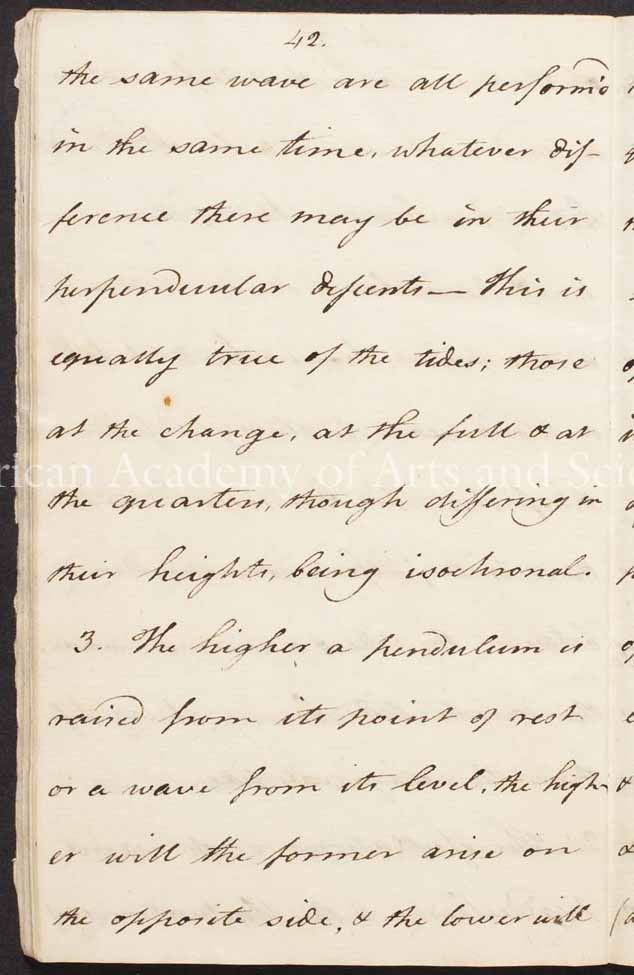 42.
the same wave are all perform'd
in the same time, whatever dif-
ference there may be in their
perpendicular descents — This is
equally true of the tides; those
at the change, at the full & at
rican Academy of Arts and Scie
the quarters, though differing in
their heights, being isochronal.
3. The higher a pendulum is
raised from its point of rest
or a wave from its level, the high-
er will the former arise on
the opposite side, & the lower will